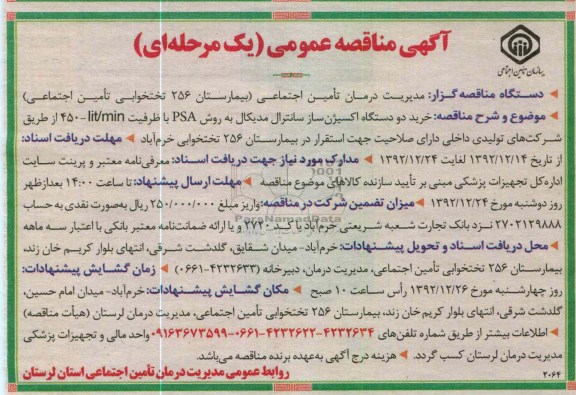 آگهی مناقصه عمومی (یک مرحله‌ای)
سازمان تأمین اجتماعی
دستگاه مناقصه گزار: مدیریت درمان تأمین اجتماعی (بیمارستان ۲۵۶ تختخوابی تأمین اجتماعی)
موضوع و شرح مناقصه: خرید دو دستگاه اکسیژن‌ساز سانترال مدیکال به روش PSA با ظرفیت ۴۵۰-lit/min از طریق
شرکت‌های تولیدی داخلی دارای صلاحیت جهت استقرار در بیمارستان ۲۵۶ تختخوابی خرم‌آباد مهلت دریافت اسناد:
از تاریخ ۱۳۹۲/۱۲/۱۴ لغایت ۱۳۹۲/۱۲/۲۴ مدارک مورد نیاز جهت دریافت اسناد: معرفی‌نامه معتبر و پرینت سایت
اداره‌کل تجهیزات پزشکی مبنی بر تأیید سازنده کالاهای موضوع مناقصه مهلت ارسال پیشنهاد: تا ساعت ۱۴:۰۰ بعدازظهر
روز دوشنبه مورخ ۱۳۹۲/۱۲/۲۴ میزان تضمین شرکت در مناقصه: واریز مبلغ ۲۵۰/۰۰۰/۰۰۰ ریال به‌صورت نقدی به حساب
۲۷۰۲۱۲۹۸۸۸ نزد بانک تجارت شعبه شریعتی خرم‌آباد با کد ۲۷۲۰ و یا ارائه ضمانت‌نامه معتبر بانکی با اعتبار سه ماهه
محل دریافت اسناد و تحویل پیشنهادات: خرم‌آباد- میدان شقایق، گلدشت شرقی، انتهای بلوار کریم خان زند،
بیمارستان ۲۵۶ تختخوابی تأمین اجتماعی، مدیریت درمان، دبیرخانه (۴۲۳۲۶۳۳-۰۶۶۱) زمان گشایش پیشنهادات:
روز چهارشنبه مورخ ۱۳۹۲/۱۲/۲۶ رأس ساعت ۱۰ صبح مکان گشایش پیشنهادات: خرم‌آباد- میدان امام حسین،
گلدشت شرقی، انتهای بلوار کریم خان زند، بیمارستان ۲۵۶ تختخوابی تأمین اجتماعی، مدیریت درمان لرستان (هیأت مناقصه)
اطلاعات بیشتر از طریق شماره تلفن‌های ۴۲۳۲۶۳۴-۴۲۳۲۶۲۲-۰۶۶۱-۰۹۱۶۳۶۷۳۵۹۹ واحد مالی و تجهیزات پزشکی
مدیریت درمان لرستان کسب گردد. هزینه درج آگهی به‌عهده برنده مناقصه می‌باشد.
روابط عمومی مدیریت درمان تأمین اجتماعی استان لرستان
۲۰۶۴
ParsNamadData